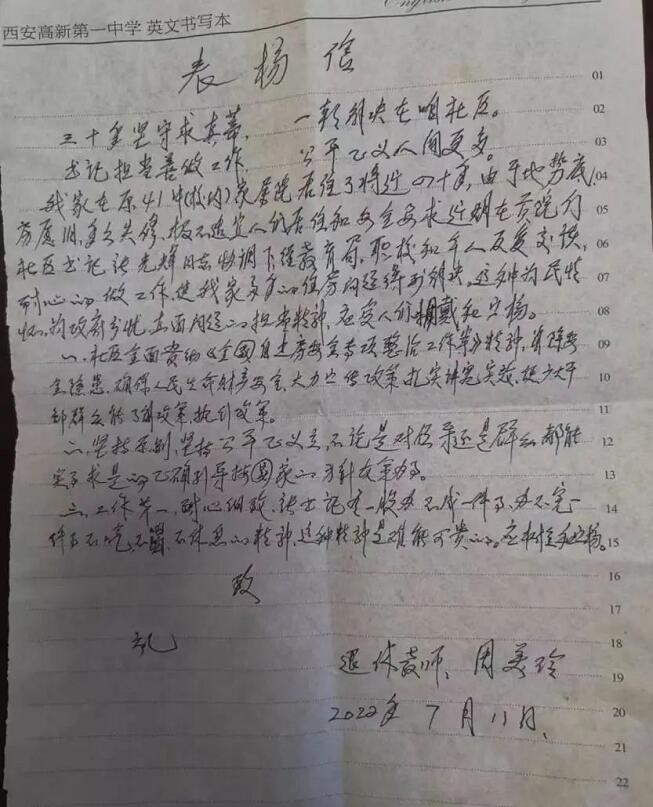 西安高新第一中学 英文书写本
表扬信
三十年坚守求真蒂, 一朝解决在咱社区。
书记担当善做工作, 公平正义人间更多。
我家在原41中(校内)家属院居住了将近四十年,由于地势底,
房屋旧,多久失修,极不适宜人们居住和安全要求近期在贡院行
社区书记,张光辉同志协调下经教育局,职校和个人反复交换,
耐心的做工作,使我家多年的住房问题得到解决。这种为民情
怀,为政府分忧,直面问题的担当精神,应受人们拥戴和宣扬。
一、社区全面贯彻《全国自建房安全专项整治工作等》精神,消除安
全隐患,确保人民生命财产安全,大力宣传政策,扎实讲究实效,使广大干
部群众能了解政策,执行政策。
二、坚持原则,坚持公平正义,不论是对领导还是群众都能
实事求是的正确引导按国家的方针政策办事。
三、工作第一,耐心细致,张书记有一股办不成一件事,办不完一
件事不吃,不喝,不休息的精神,这种精神是难能可贵的。应
致
礼
退休教师、周美玲
2022年7月11日、
01
02
03
04
05
06
07
08
09
10
11
12
13
14
15
16
17
18
19
20
21
22